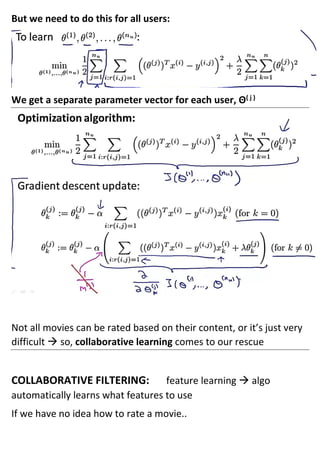 But we need to do this for all users:
To learn θ^(1), θ^(2), ..., θ^(n_u):
min_{θ^(1),...,θ^(n_u)} 1/2 ∑_{j=1}^{n_u} ∑_{i:r(i,j)=1} ((θ^(j))^T x^(i) − y^(i,j))^2 + λ/2 ∑_{j=1}^{n_u} ∑_{k=1}^{n} (θ_k^(j))^2
We get a separate parameter vector for each user, Θ^(j)
Optimization algorithm:
min_{θ^(1),...,θ^(n_u)} 1/2 ∑_{j=1}^{n_u} ∑_{i:r(i,j)=1} ((θ^(j))^T x^(i) − y^(i,j))^2 + λ/2 ∑_{j=1}^{n_u} ∑_{k=1}^{n} (θ_k^(j))^2
J(θ^(1), ..., θ^(n_u))
Gradient descent update:
θ_k^(j) := θ_k^(j) − α ∑_{i:r(i,j)=1} ((θ^(j))^T x^(i) − y^(i,j)) x_k^(i) (for k = 0)
θ_k^(j) := θ_k^(j) − α (∑_{i:r(i,j)=1} ((θ^(j))^T x^(i) − y^(i,j)) x_k^(i) + λθ_k^(j)) (for k ≠ 0)
1/m ∂/∂θ_k^(j) J(θ^(1), ..., θ^(n_u))
Not all movies can be rated based on their content, or it's just very
difficult → so, collaborative learning comes to our rescue
COLLABORATIVE FILTERING: feature learning → algo
automatically learns what features to use
If we have no idea how to rate a movie..